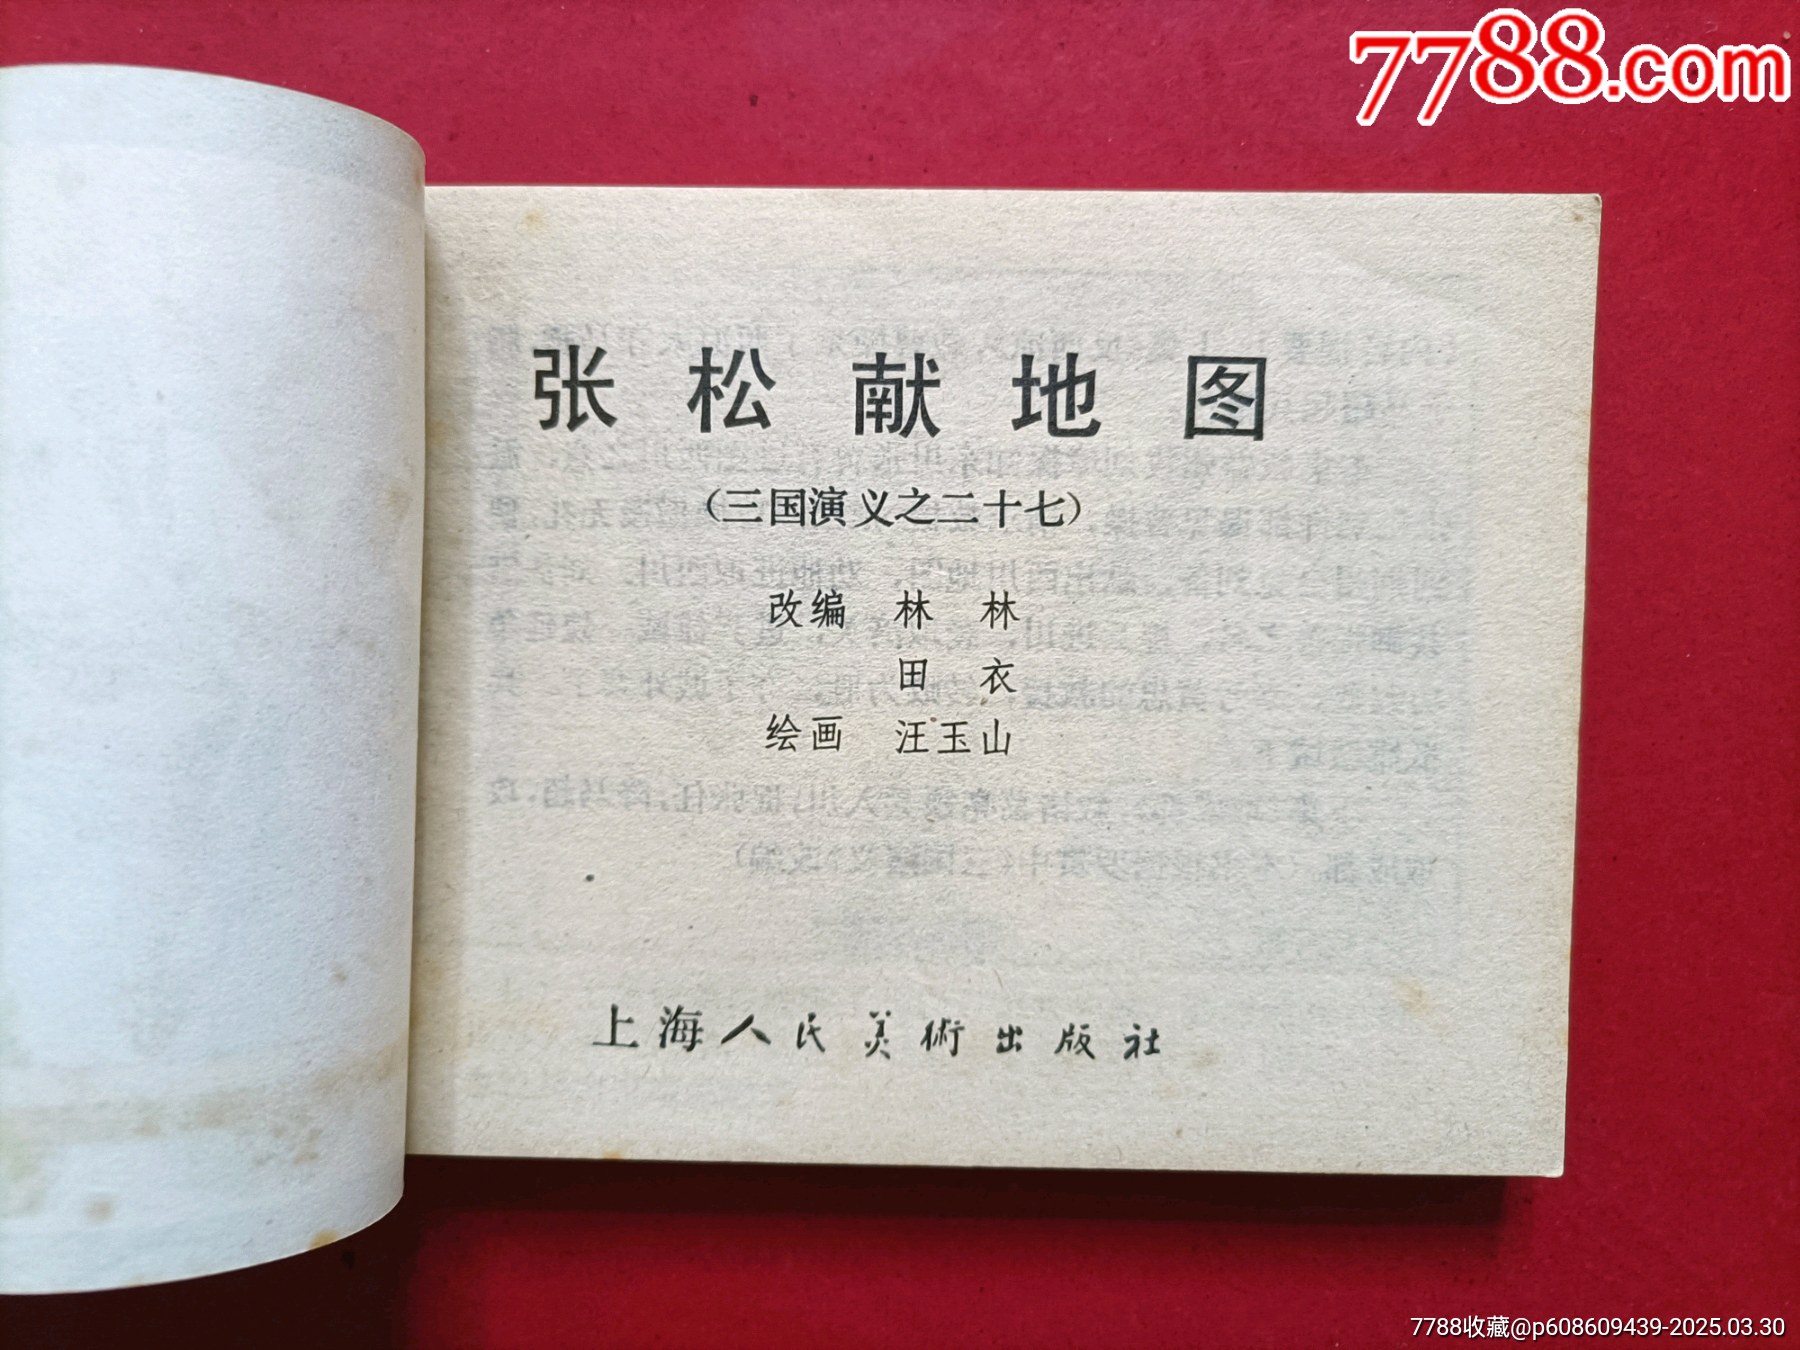 7788.com
张松献地图
(三国演义之二十七)
改编 林林
田衣
绘画 汪玉山
上海人民美術出版社
7788收藏@p608609439-2025.03.30